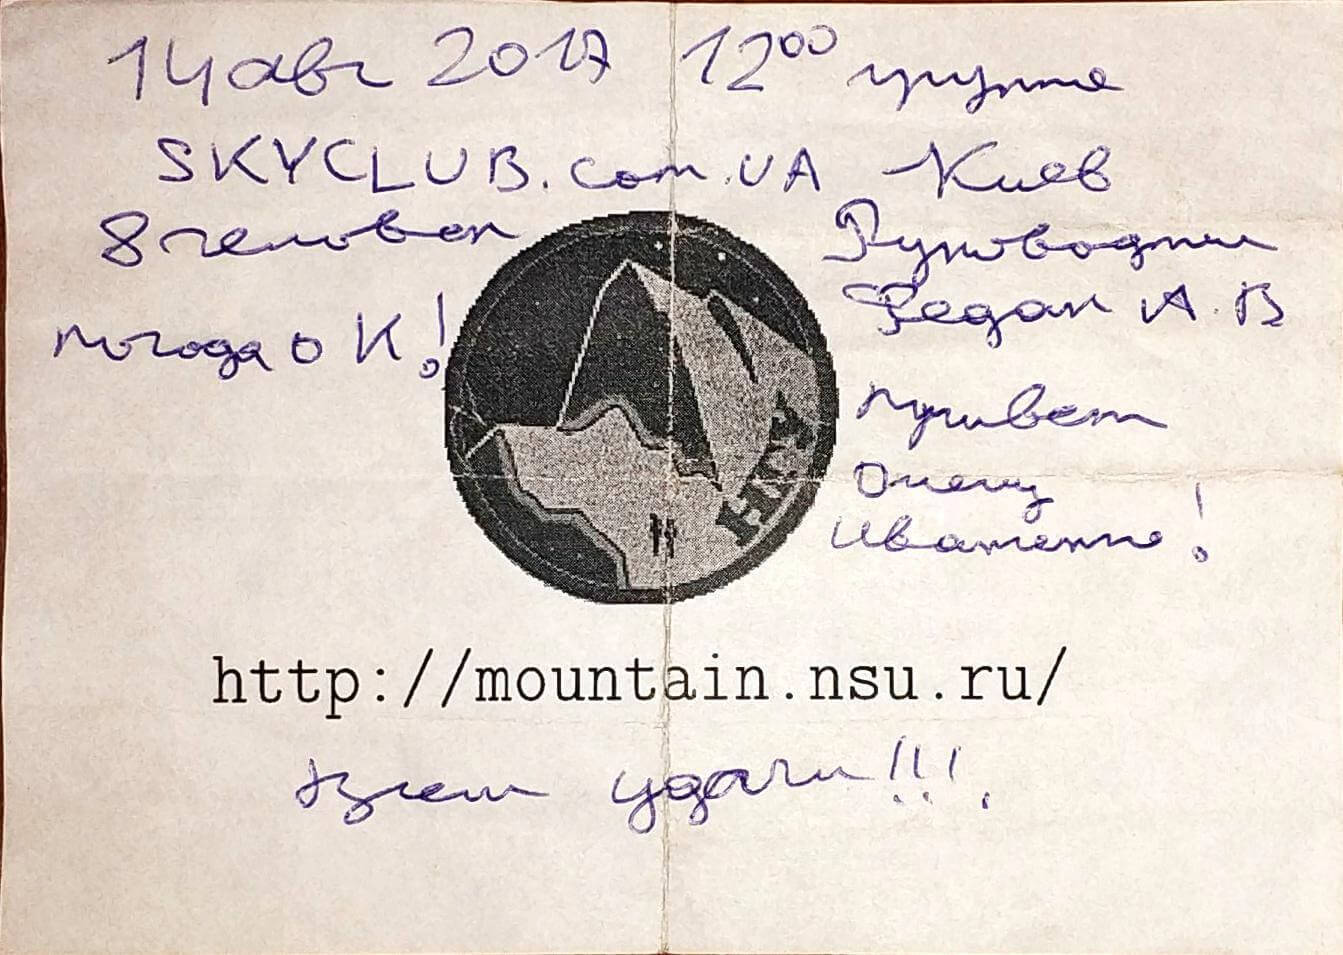 14 авг 2017 12⁰⁰ группа
SKYCLUB.com.UA Киев
8 человек
Руководитель
Федан А.В
погода ОК!
привет
Олегу
Иватенко!
НГУ
http://mountain.nsu.ru/
Всем удачи!!!